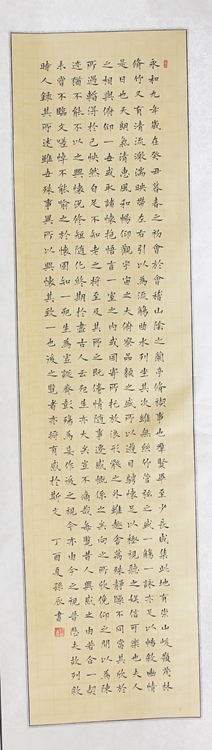 永和九年歲在癸丑暮春之初會於會稽山陰之蘭亭脩禊事也羣賢畢至少長咸集此地有崇山峻嶺茂林
脩竹又有清流激湍映帶左右引以為流觴曲水列坐其次雖無絲竹管弦之盛一觴一詠亦足以暢敘幽情
是日也天朗氣清惠風和暢仰觀宇宙之大俯察品類之盛所以遊目騁懷足以極視聽之娛信可樂也夫人
之相與俯仰一世或取諸懷抱悟言一室之內或因寄所托放浪形骸之外雖趣舍萬殊靜躁不同當其欣於
所遇暫得於己怏然自足不知老之將至及其所之既倦情隨事遷感慨係之矣向之所欣俛仰之間以為陳
迹猶不能不以之興懷況脩短隨化終期於盡古人云死生亦大矣豈不痛哉每覽昔人興感之由若合一契
未嘗不臨文嗟悼不能喻之於懷固知一死生為虛誕齊彭殤為妄作後之視今亦由今之視昔悲夫故列敘
時人錄其所述雖世殊事異所以興懷其致一也後之覽者亦將有感於斯文 丁酉夏孫辰書